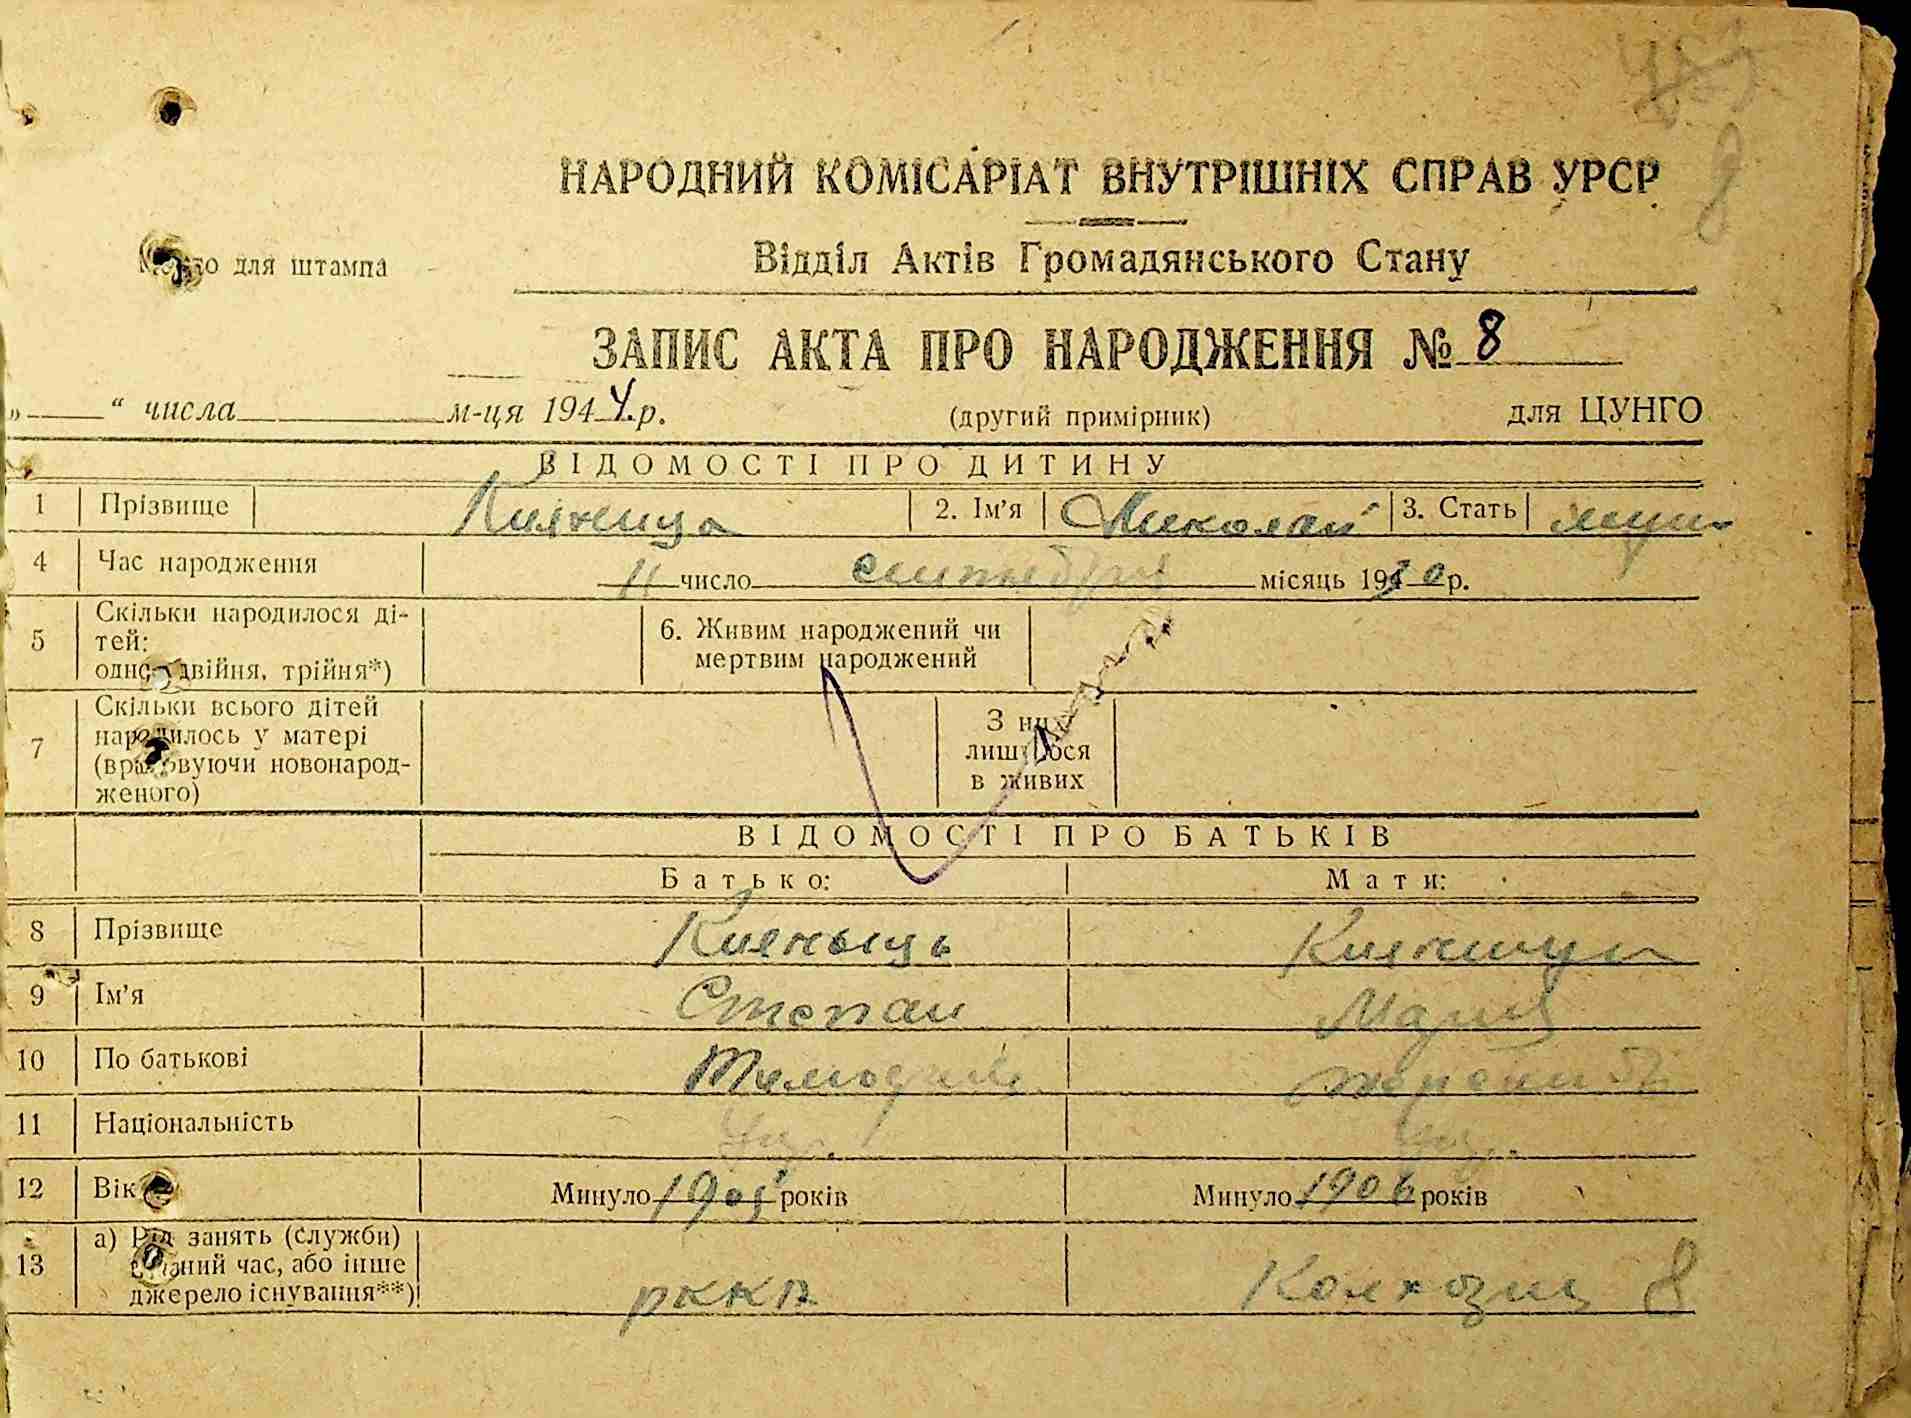 НАРОДНИЙ КОМІСАРІАТ ВНУТРІШНІХ СПРАВ УРСР
8
Місто для штампа
Відділ Актів Громадянського Стану
ЗАПИС АКТА ПРО НАРОДЖЕННЯ № 8
„ “ числа м-ця 1944.р. (другий примірник) для ЦУНГО
ВІДОМОСТІ ПРО ДИТИНУ
1 Прізвище Кияница 2. Ім'я Николай 3. Стать муж
4 Час народження 11 число сентября місяць 1930 р.
5 Скільки народилося ді-
тей:
одно, двійня, трійня*)
6. Живим народжений чи
мертвим народжений
7 Скільки всього дітей
народилось у матері
(враховуючи новонарод-
женого)
З них
лишилося
в живих
ВІДОМОСТІ ПРО БАТЬКІВ
Батько: Мати:
8 Прізвище Кияныць Кияница
9 Ім'я Степан Мария
10 По батькові
11 Національність Укр. Укр.
12 Вік Минуло 1905 років Минуло 1906 років
13 а) Рід занять (служби)
в даний час, або інше
джерело існування**)
РККА Колхозниц 8